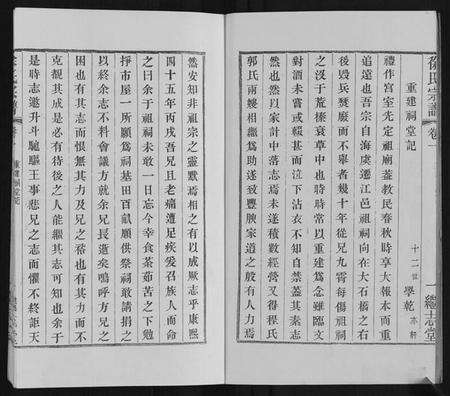 孫氏宗譜 卷一
重建祠堂記
十二世 學乾 亦軒
禮作宮室先定祖廟蓋教民春秋時享大報本而重
追遠也吾宗自海虞遷江邑祖祠向在大石橋之右
後毀兵燹廢而不舉者幾十年從兄九霄每傷祖祠
之沒于荒榛衰草中也時時常以重建爲念雖臨文
對酒未嘗或輟甚而泣下沾衣不知自禁蓋其素志
以家計中落志焉未遂積數經營又得程氏
郭氏兩嫂相繼爲助遂致豐腴家道之殷有人力焉
一 繼志堂
然安知非祖宗之靈默焉相之以成厥志乎康熙
四十五年丙戌吾兄且老痛遭足疾爰召族人而命
之曰余于祖祠未敢一日忘今幸食荼茹苦之下勉
掙市屋一所願爲祠基田百畝願供祭祠敢請捐之
以終余志不料會議方就余兄長逝矣嗚呼方兄之
困也有其志而恨無其力及兄之裕也有其力而不
克覩其成是必有待後之人能繼其志可知也余于
是時志邀升斗驅驅王事悲兄之志而懼不終詎天